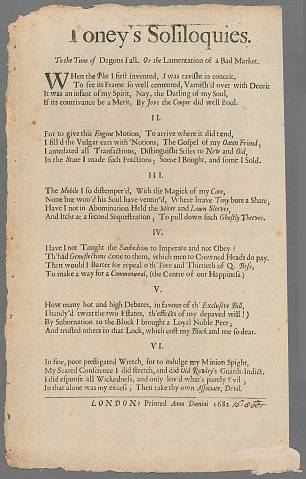 Toney's Soliloquies.
To the Tune of Dagons Fall. Or the Lamentation of a Bad Market.
WHen the Plot I first invented, I was ravisht in conceit,
To see its Frame so well cemented, Varnish'd over with Deceit
It was an infant of my Spirit, Nay, the Darling of my Soul,
If its contrivance be a Merit, By Jove the Cooper did well Foul.
II.
For to give this Engine Motion, To arrive where it did tend,
I fill'd the Vulgar ears with 'Notions, The Gospel of my Oaten Friend;
I antedated all Transactions, Distinguisht Stiles to New and Old,
In the State I made such Fractions; Some I Bought, and some I Sold.
III.
The Mobile I so distemper'd, With the Magick of my Core,
None but wou'd his Soul have ventur'd, Where brave Tony bore a Share;
Have I not in Abomination Held the Miter and Lawn Sleeves,
And Itcht at a second Sequestration; To pull down such Ghostly Theeves.
IV.
Have I not Taught the Sanhedrim to Imperate and not Obey?
Th'had Genuflections done to them, which men to Crowned Heads do pay.
Then would I Barter for repeal o'th' Five and Thirtieth of Q. Bess,
To make a way for a Commonweal, (the Centre of our Happiness.)
V.
How many hot and high Debates, in favour of th' Exclusive Bill,
I bandy'd twixt the two Estates, th'effects of my depaved will!)
By Subornation to the Block I brought a Loyal Noble Peer;
And trusted others to that Lock, which cost my Block and me so dear.
VI.
In fine, poor prestigated Wretch, for to indulge my Minion Spight,
My Seared Conscience I did stretch, and did Old Rowley's Guards Indict.
I did espouse all Wickedness, and only lov'd what's purely Evil;
In that alone was my excess; Then take thy own Associate, Devil.
LONDON: Printed Anno Domini 1682